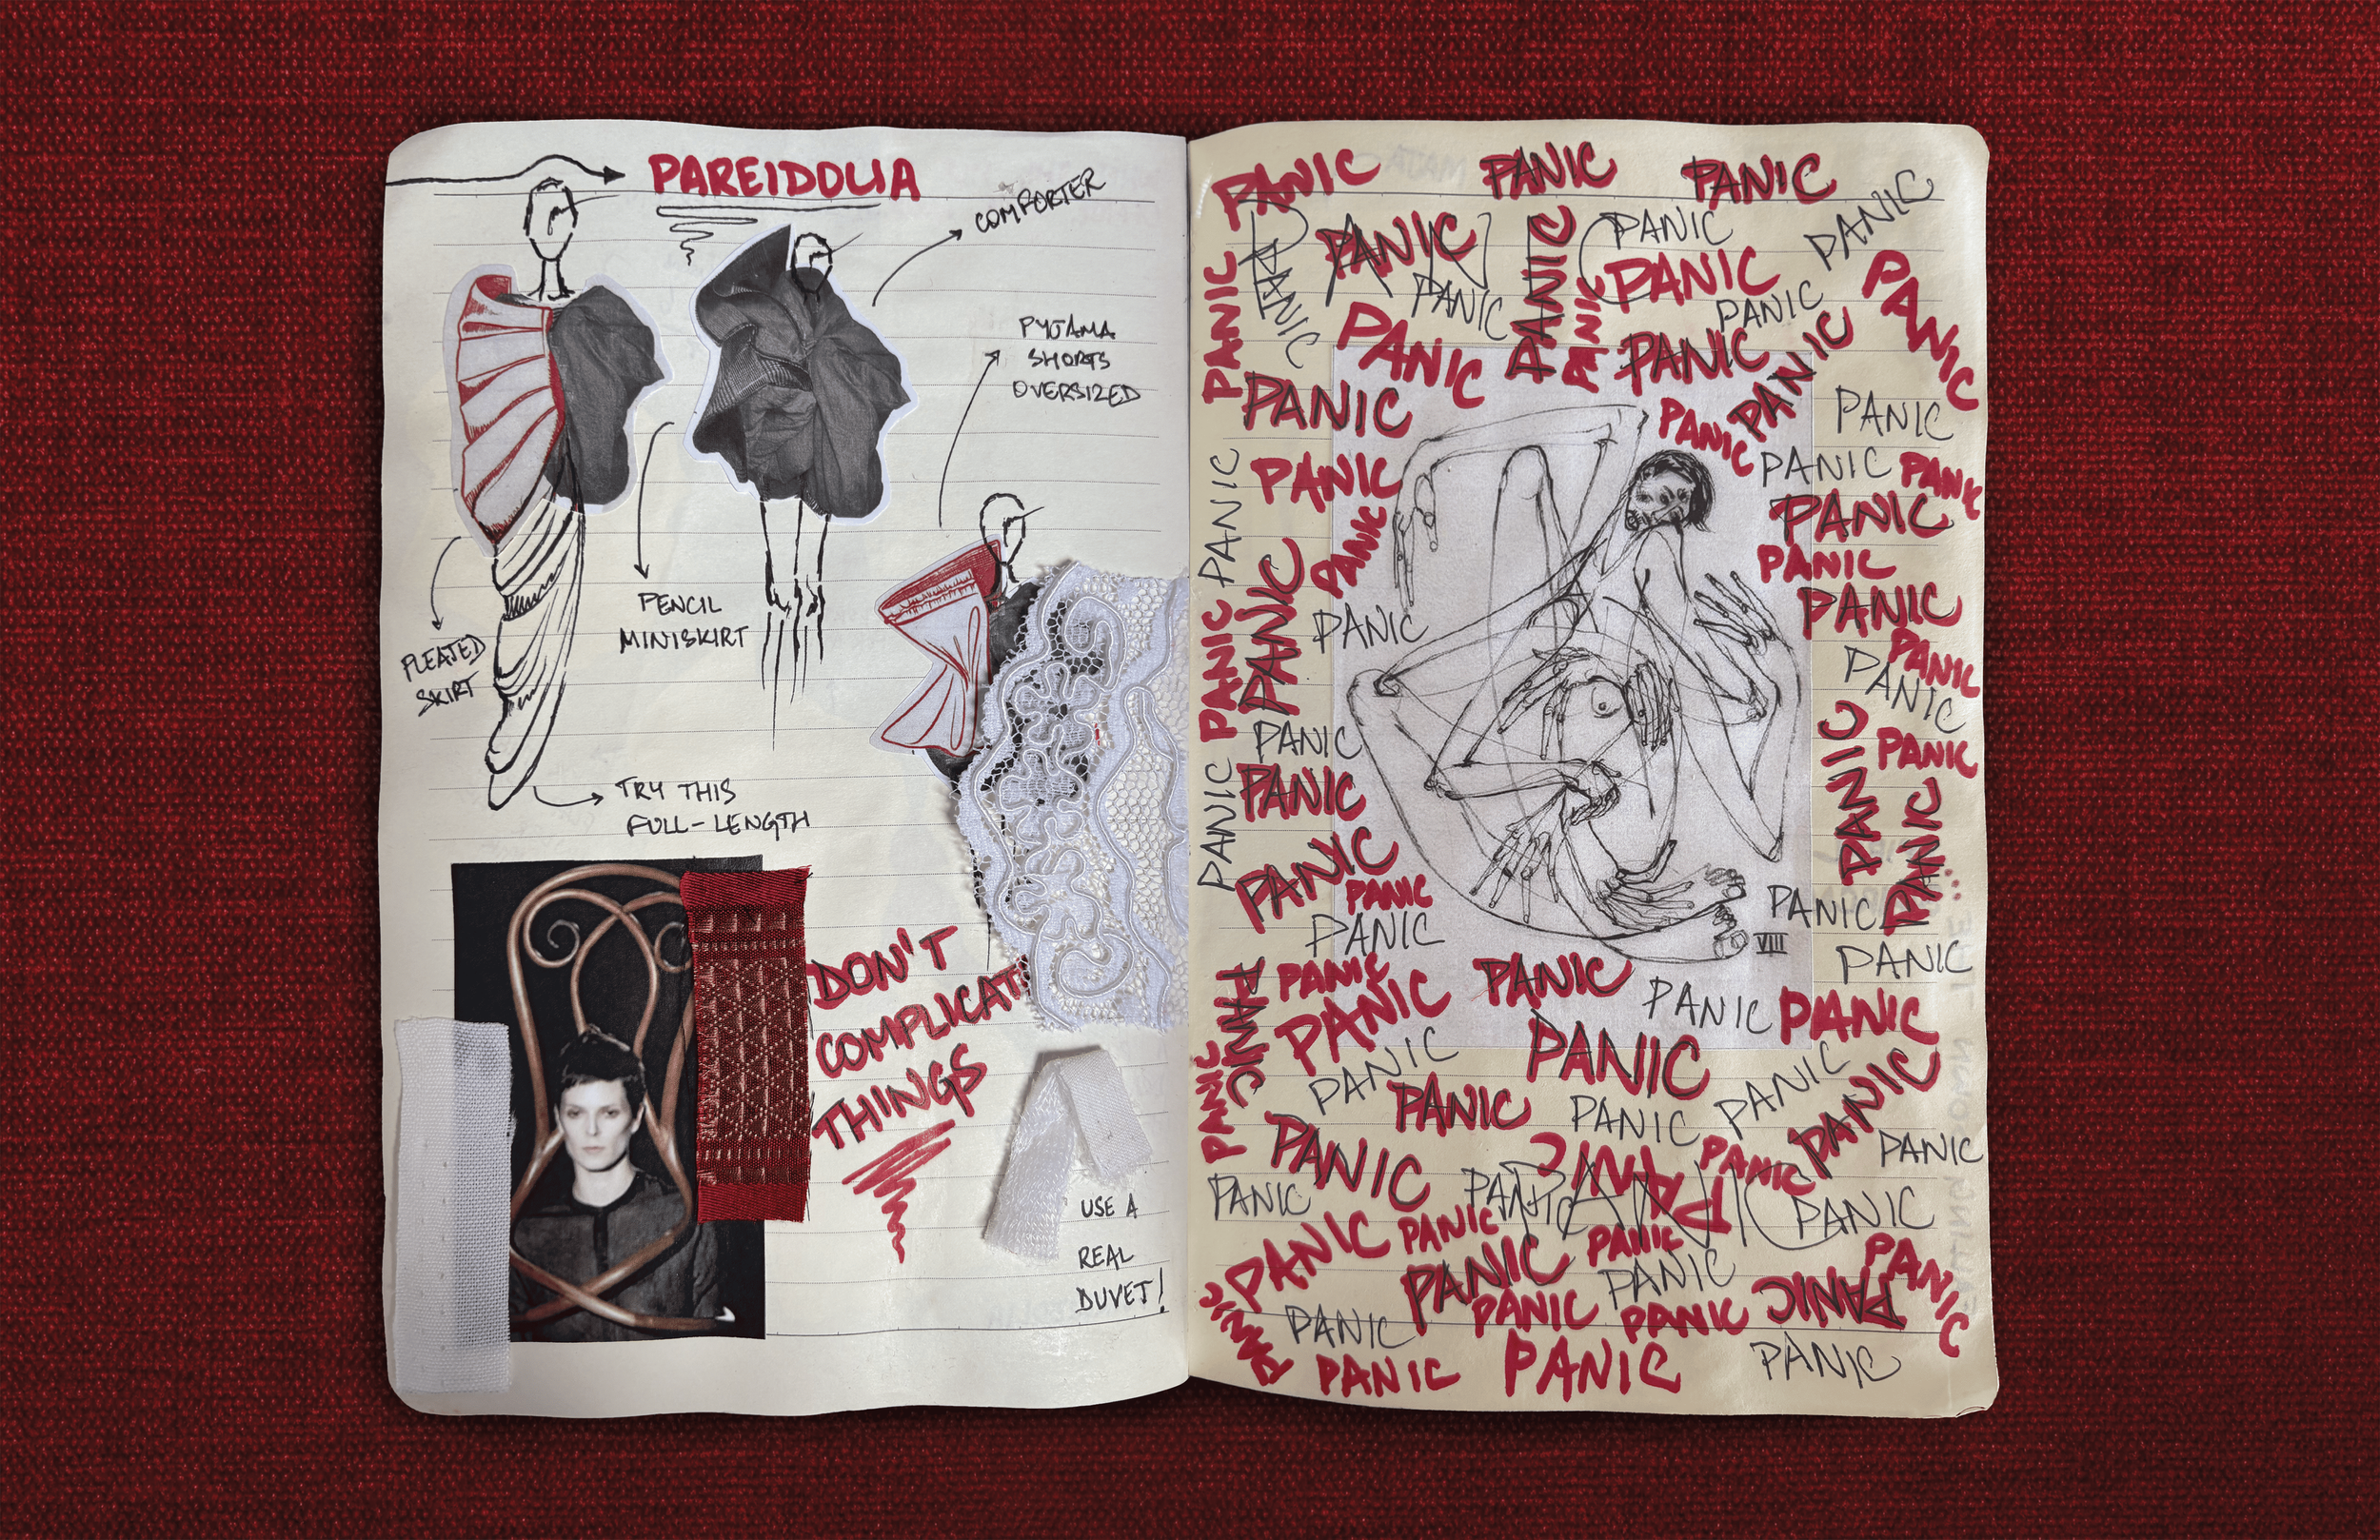 PAREIDOLIA
COMFORTER
PYJAMA
SHORTS
OVERSIZED
PENCIL
MINISKIRT
PLEATED
SKIRT
TRY THIS
FULL-LENGTH
DON'T
COMPLICAT
THINGS
USE A
REAL
DUVET!
PANIC PANIC PANIC
PANIC PANIC PANIC PANIC PANIC
PANIC PANIC PANIC PANIC PANIC
PANIC PANIC PANIC PANIC PANIC
PANIC PANIC PANIC PANIC
PANIC PANIC PANIC PANIC
PANIC PANIC PANIC
PANIC PANIC PANIC
PANIC PANIC PANIC PANIC
PANIC PANIC PANIC
PANIC PANIC PANIC PANIC
PANIC PANIC PANIC
PANIC PANIC PANIC
VIII
PANIC PANIC PANIC PANIC
PANIC PANIC PANIC PANIC
PANIC PANIC PANIC PANIC
PANIC PANIC PANIC PANIC PANIC
PANIC PANIC PANIC PANIC PANIC
PANIC PANIC PANIC PANIC PANIC
PANIC PANIC PANIC PANIC PANIC
PANIC PANIC PANIC PANIC
PANIC PANIC PANIC